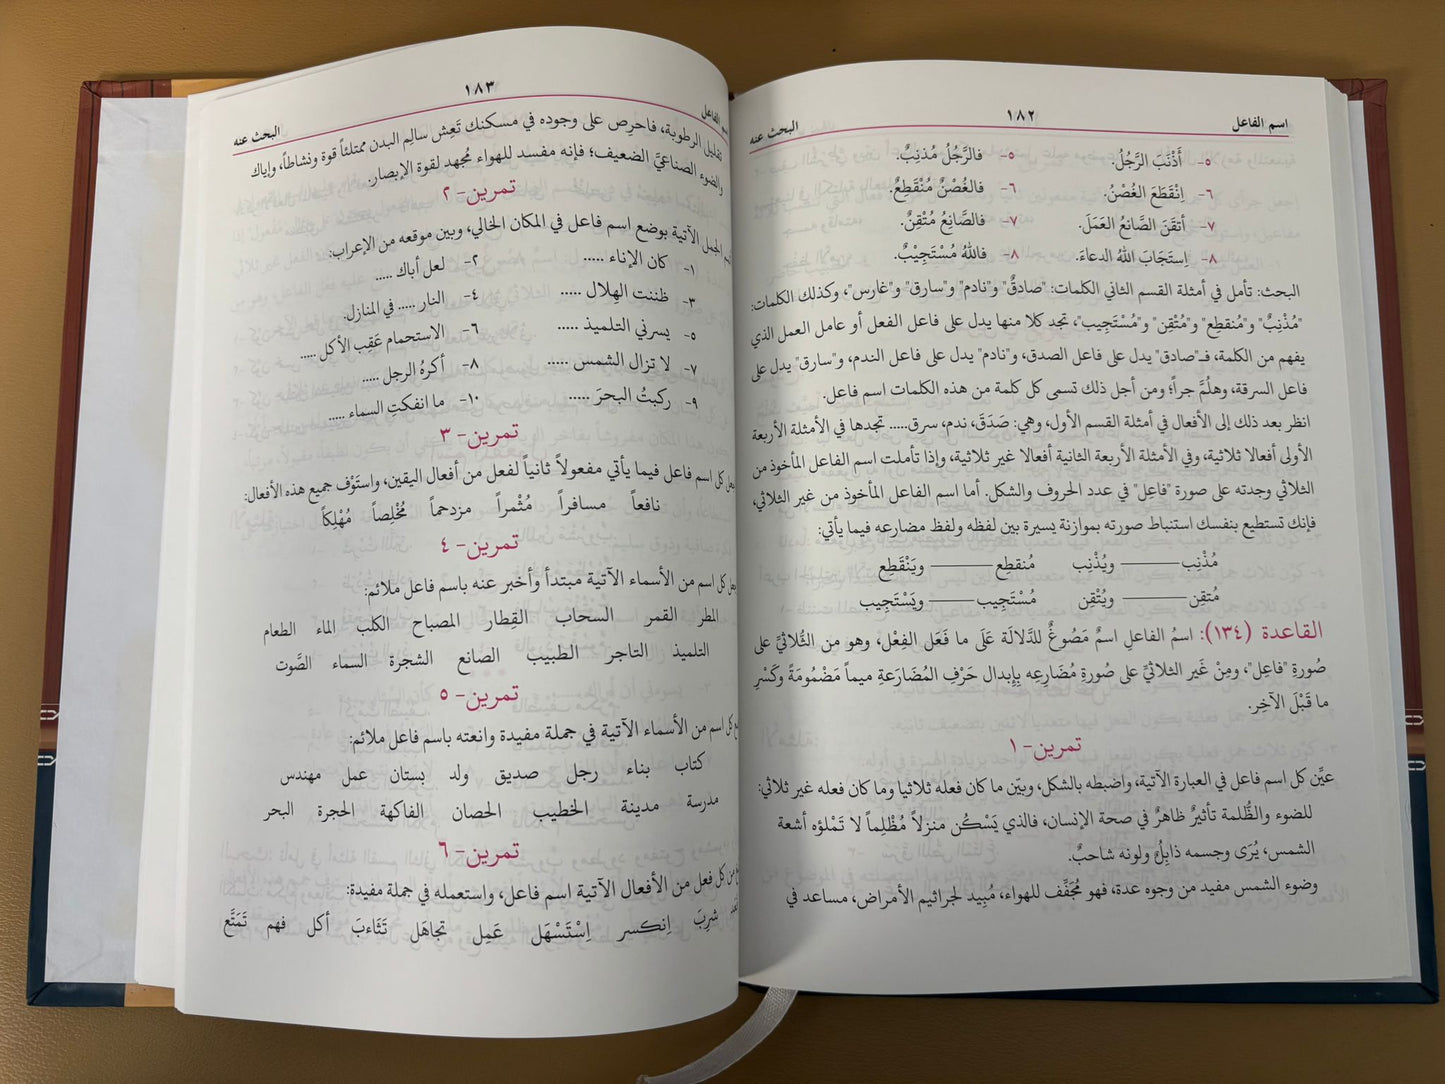 اسم الفاعل ١٨٢ البحث عنه
٥- أَذْنَبَ الرَّجُلُ. ٥- فالرَّجُلُ مُذنِبٌ.
٦- اِنْقَطَعَ الغُصْنُ. ٦- فالغُصْنُ مُنْقَطِعٌ.
٧- أتقَنَ الصَّانِعُ العَمَلَ. ٧- فالصَّانِعُ مُتْقِنٌ.
٨- اِستَجَابَ اللهُ الدعاءَ. ٨- فاللهُ مُسْتَجِيْبٌ.
البحث: تأمل في أمثلة القسم الثاني الكلمات: "صادقٌ" و"نادم" و"سارق" و"غارس"، وكذلك الكلمات:
"مُذْنِبٌ" و"مُنقطِع" و"مُتْقِن" و"مُسْتَجِيب"، تجد كلا منها يدل على فاعل الفعل أو عامل العمل الذي
يفهم من الكلمة، فـ"صادق" يدل على فاعل الصدق، و"نادم" يدل على فاعل الندم، و"سارق" يدل على
فاعل السرقة، وهلُمَّ جراً؛ ومن أجل ذلك تسمى كل كلمة من هذه الكلمات اسم فاعل.
انظر بعد ذلك إلى الأفعال في أمثلة القسم الأول، وهي: صَدَقَ، ندم، سرق..... تجدها في الأمثلة الأربعة
الأولى أفعالا ثلاثية، وفي الأمثلة الأربعة الثانية أفعالا غير ثلاثية، وإذا تأملت اسم الفاعل المأخوذ من
الثلاثي وجدته على صورة "فاعِل" في عدد الحروف والشكل. أما اسم الفاعل المأخوذ من غير الثلاثي،
فإنك تستطيع بنفسك استنباط صورته بموازنة يسيرة بين لفظه ولفظ مضارعه فيما يأتي:
مُذْنِب ——— ويُذْنِب مُنقطِع ——— ويَنْقَطِع
مُتقِن ——— ويُتْقِن مُسْتَجِيب ——— ويَسْتَجِيب
القاعدة (١٣٤): اسمُ الفاعلِ اسمٌ مَصُوغٌ للدَّلالَة عَلَى ما فَعَل الفِعْل، وهو من الثُّلاثيِّ على
صُورةِ "فاعِل"، ومِنْ غَير الثلاثيِّ على صُورةِ مُضَارِعِه بِإبدال حَرْفِ المُضَارَعةِ ميماً مَضْمُومَةً وكَسْرِ
ما قَبْلَ الآخِر.
تمرين- ١
عيِّن كل اسم فاعل في العبارة الآتية، واضبطه بالشكل، وبيّن ما كان فعله ثلاثيا وما كان فعله غير ثلاثي:
للضوء والظُّلمة تأثيرٌ ظاهرٌ في صحة الإنسان، فالذي يَسْكُن منزلاً مُظْلِماً لا تَمْلؤه أشعة
الشمس، يُرَى وجسمه ذابِلٌ ولونه شاحبٌ.
وضوء الشمس مفيد من وجوه عدة، فهو مُجَفِّف للهواء، مُبِيد لجراثيم الأمراض، مساعد في
اسم الفاعل ١٨٣ البحث عنه
تقليل الرطوبة، فاحرِص على وجوده في مسكنك تَعِش سالِم البدن ممتلئاً قوة ونشاطاً، وإياك
والضوء الصناعيَّ الضعيف؛ فإنه مفسد للهواء مُجهد لقوة الإبصار.
تمرين- ٢
الجمل الآتية بوضع اسم فاعل في المكان الخالي، وبين موقعه من الإعراب:
١- كان الإناء ..... ٢- لعل أباك .....
٣- ظننت الهِلال ..... ٤- النار ..... في المنازل.
٥- يسرني التلميذ ..... ٦- الاستحمام عَقِب الأكل .....
٧- لا تزال الشمس ..... ٨- أكرهُ الرجل .....
٩- ركبتُ البحرَ ..... ١٠- ما انفكتِ السماء .....
تمرين- ٣
كل اسم فاعل فيما يأتي مفعولاً ثانياً لفعل من أفعال اليقين، واستَوْف جميع هذه الأفعال:
نافعاً مسافراً مُثْمراً مزدحماً مُخْلِصاً مُهْلِكاً
تمرين- ٤
كل اسم من الأسماء الآتية مبتدأ وأخبر عنه باسم فاعل ملائم:
المطر القمر السحاب القِطار المصباح الكلب الماء الطعام
التلميذ التاجر الطبيب الصانع الشجرة السماء الصَّوت
تمرين- ٥
كل اسم من الأسماء الآتية في جملة مفيدة وانعته باسم فاعل ملائم:
كتاب بناء رجل صديق ولد بستان عمل مهندس
مدرسة مدينة الخطيب الحصان الفاكهة الحجرة البحر
تمرين- ٦
من كل فعل من الأفعال الآتية اسم فاعل، واستعمله في جملة مفيدة:
شرِبَ اِنكسر اِسْتَسْهَل عَمِل تجاهَل تَثَاءبَ أكل فهم تَمَتَّع